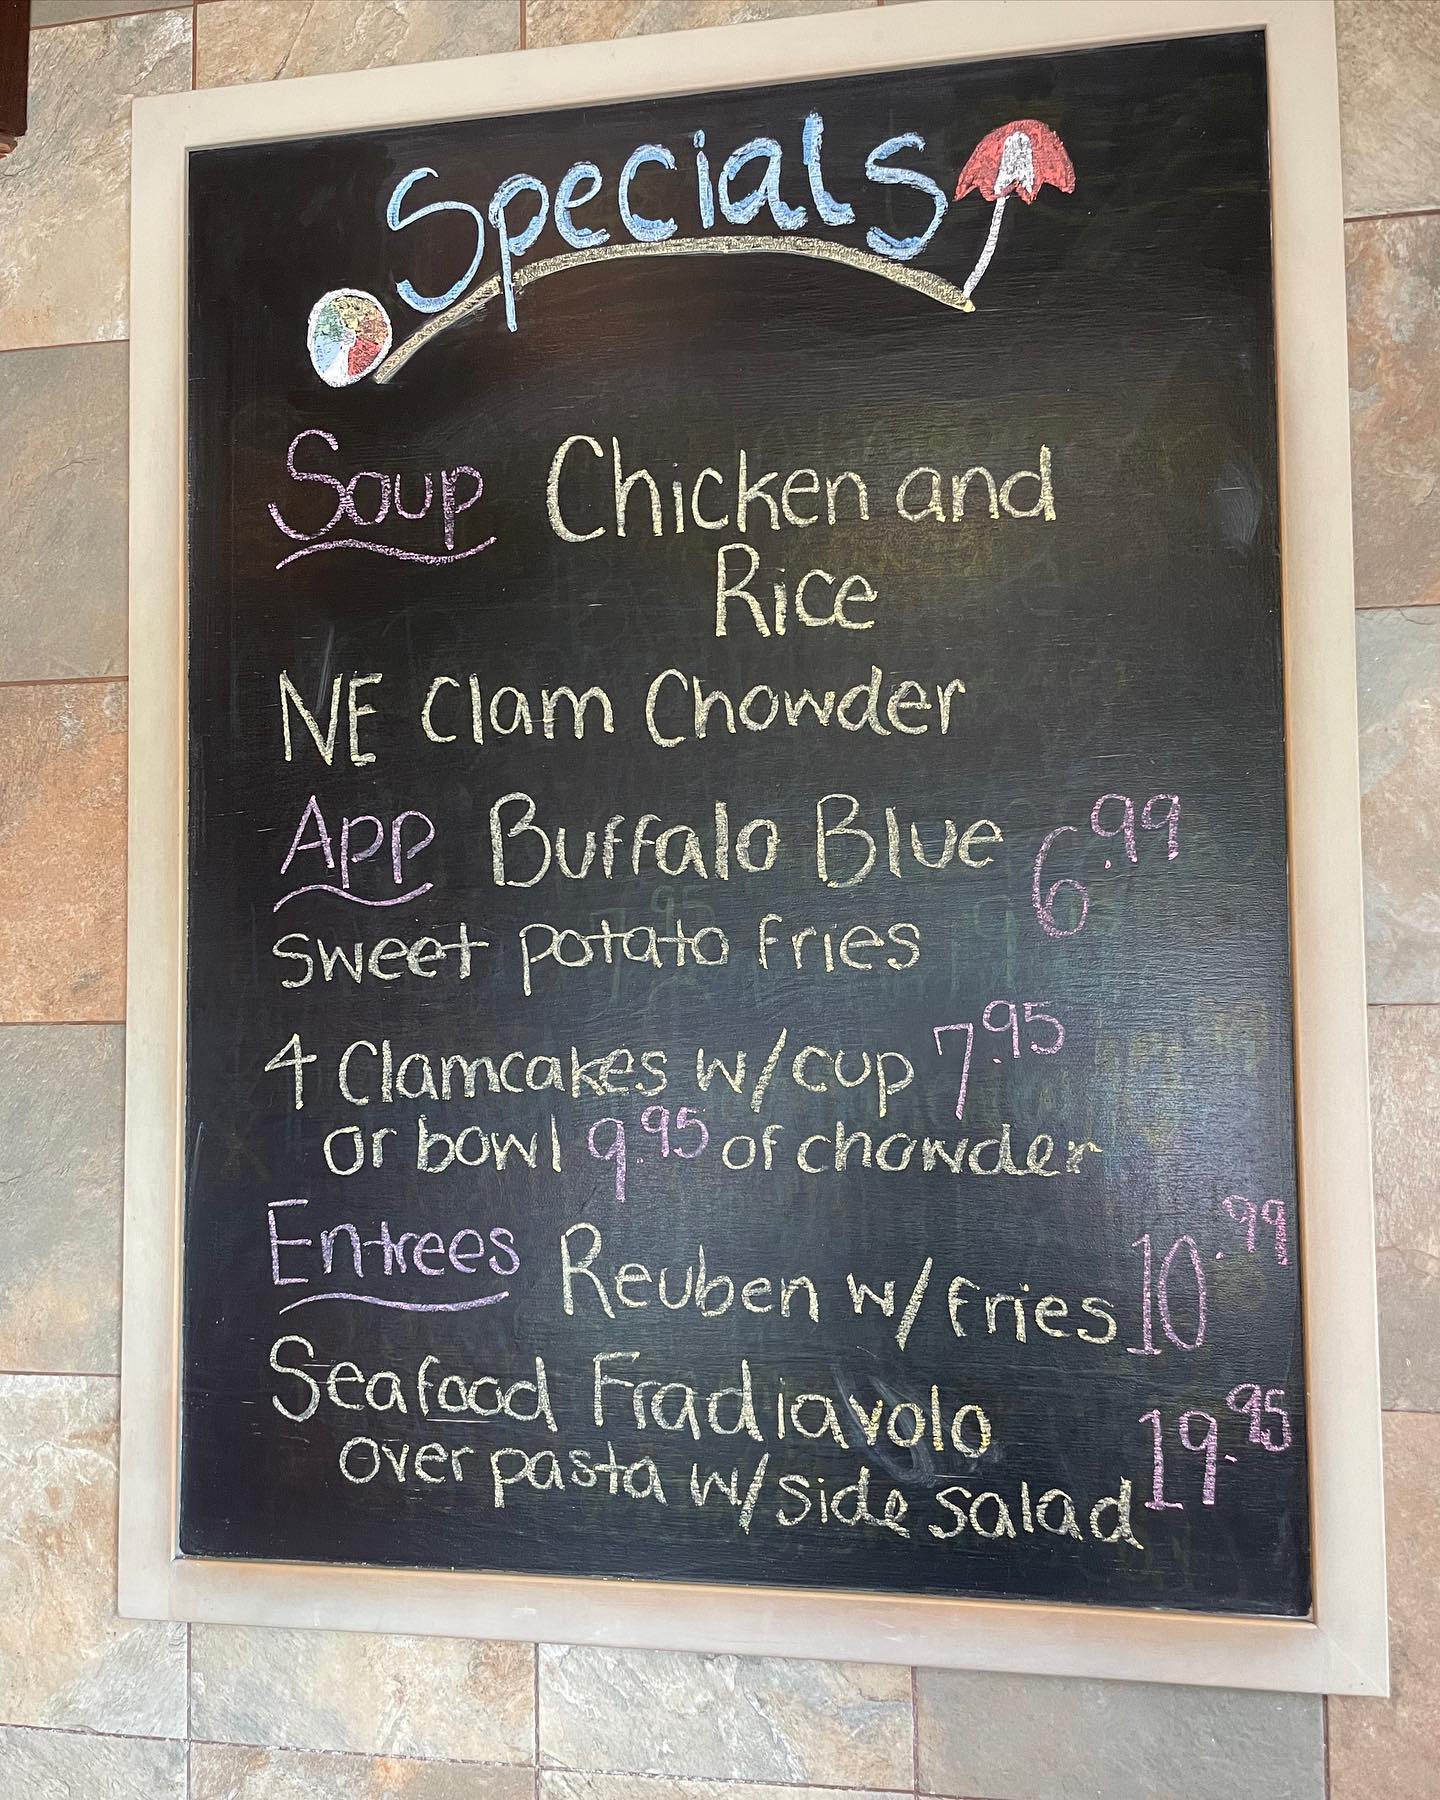 Specials
Soup Chicken and
Rice
NE Clam Chowder
App Buffalo Blue 6.99
sweet potato fries
4 Clamcakes w/cup 7.95
or bowl 9.95 of chowder
Entrees Reuben w/fries 10.99
Seafood Fradiavolo
over pasta w/side salad 19.95